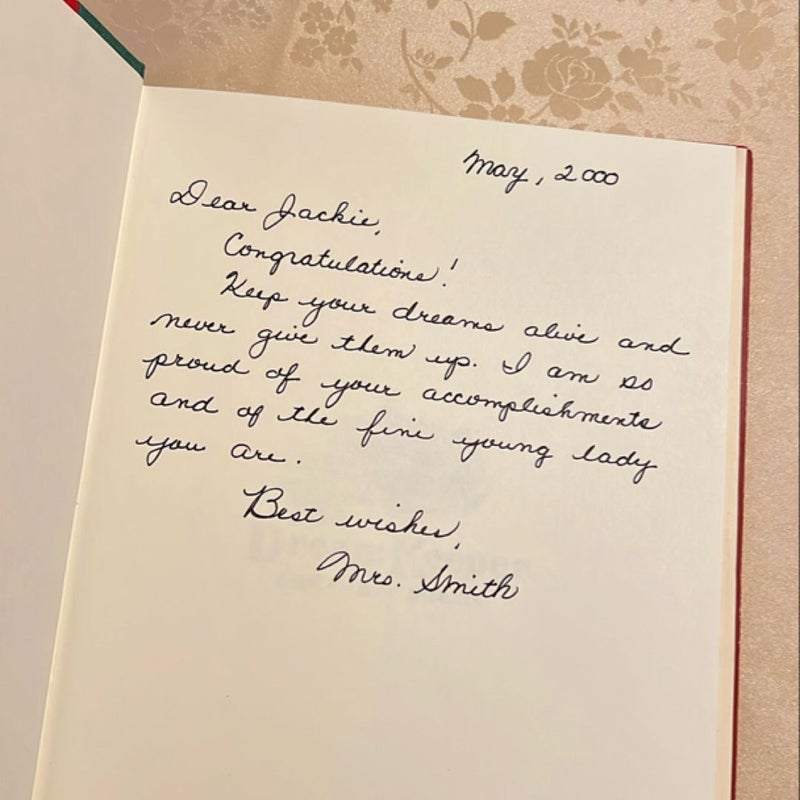 May, 2000
Dear Jackie,
Congratulations!
Keep your dreams alive and
never give them up. I am so
proud of your accomplishments
and of the fine young lady
you are.
Best wishes,
Mrs. Smith